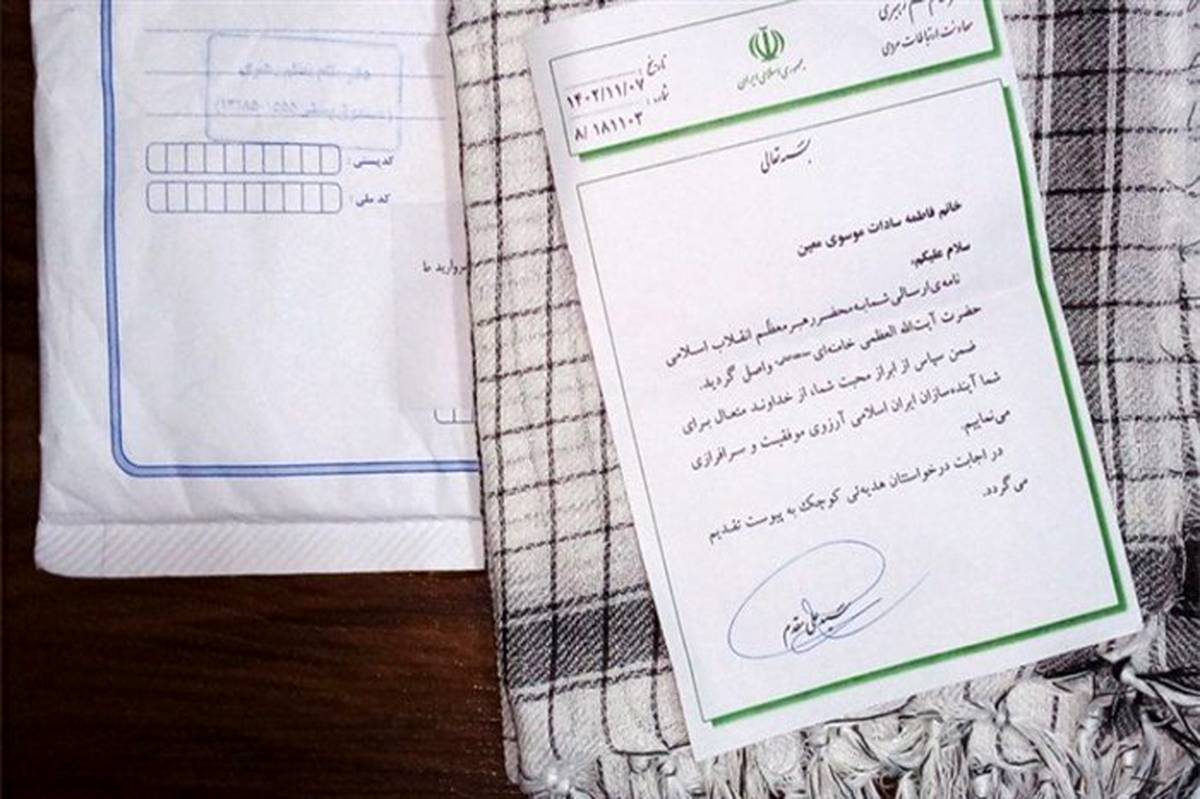 معاونت ارتباطات مردمی
جمهوری اسلامی ایران
تاریخ: ۱۴۰۲/۱۱/۰۷
شماره: ۸/۱۸۱۱۰۳
بسمه تعالی
خانم فاطمه سادات موسوی معین
سلام علیکم،
نامه‌ی ارسالی شما به محضر رهبر معظّم انقلاب اسلامی
حضرت آیت‌الله العظمی خامنه‌ای واصل گردید.
ضمن سپاس از ابراز محبت شما، از خداوند متعال برای
شما آینده‌سازان ایران اسلامی آرزوی موفقیت و سرافرازی
می‌نماییم.
در اجابت درخواستتان هدیه‌ئی کوچک به پیوست تقدیم
می‌گردد.
سیدعلی مقدم
کدپستی:
کد ملی: